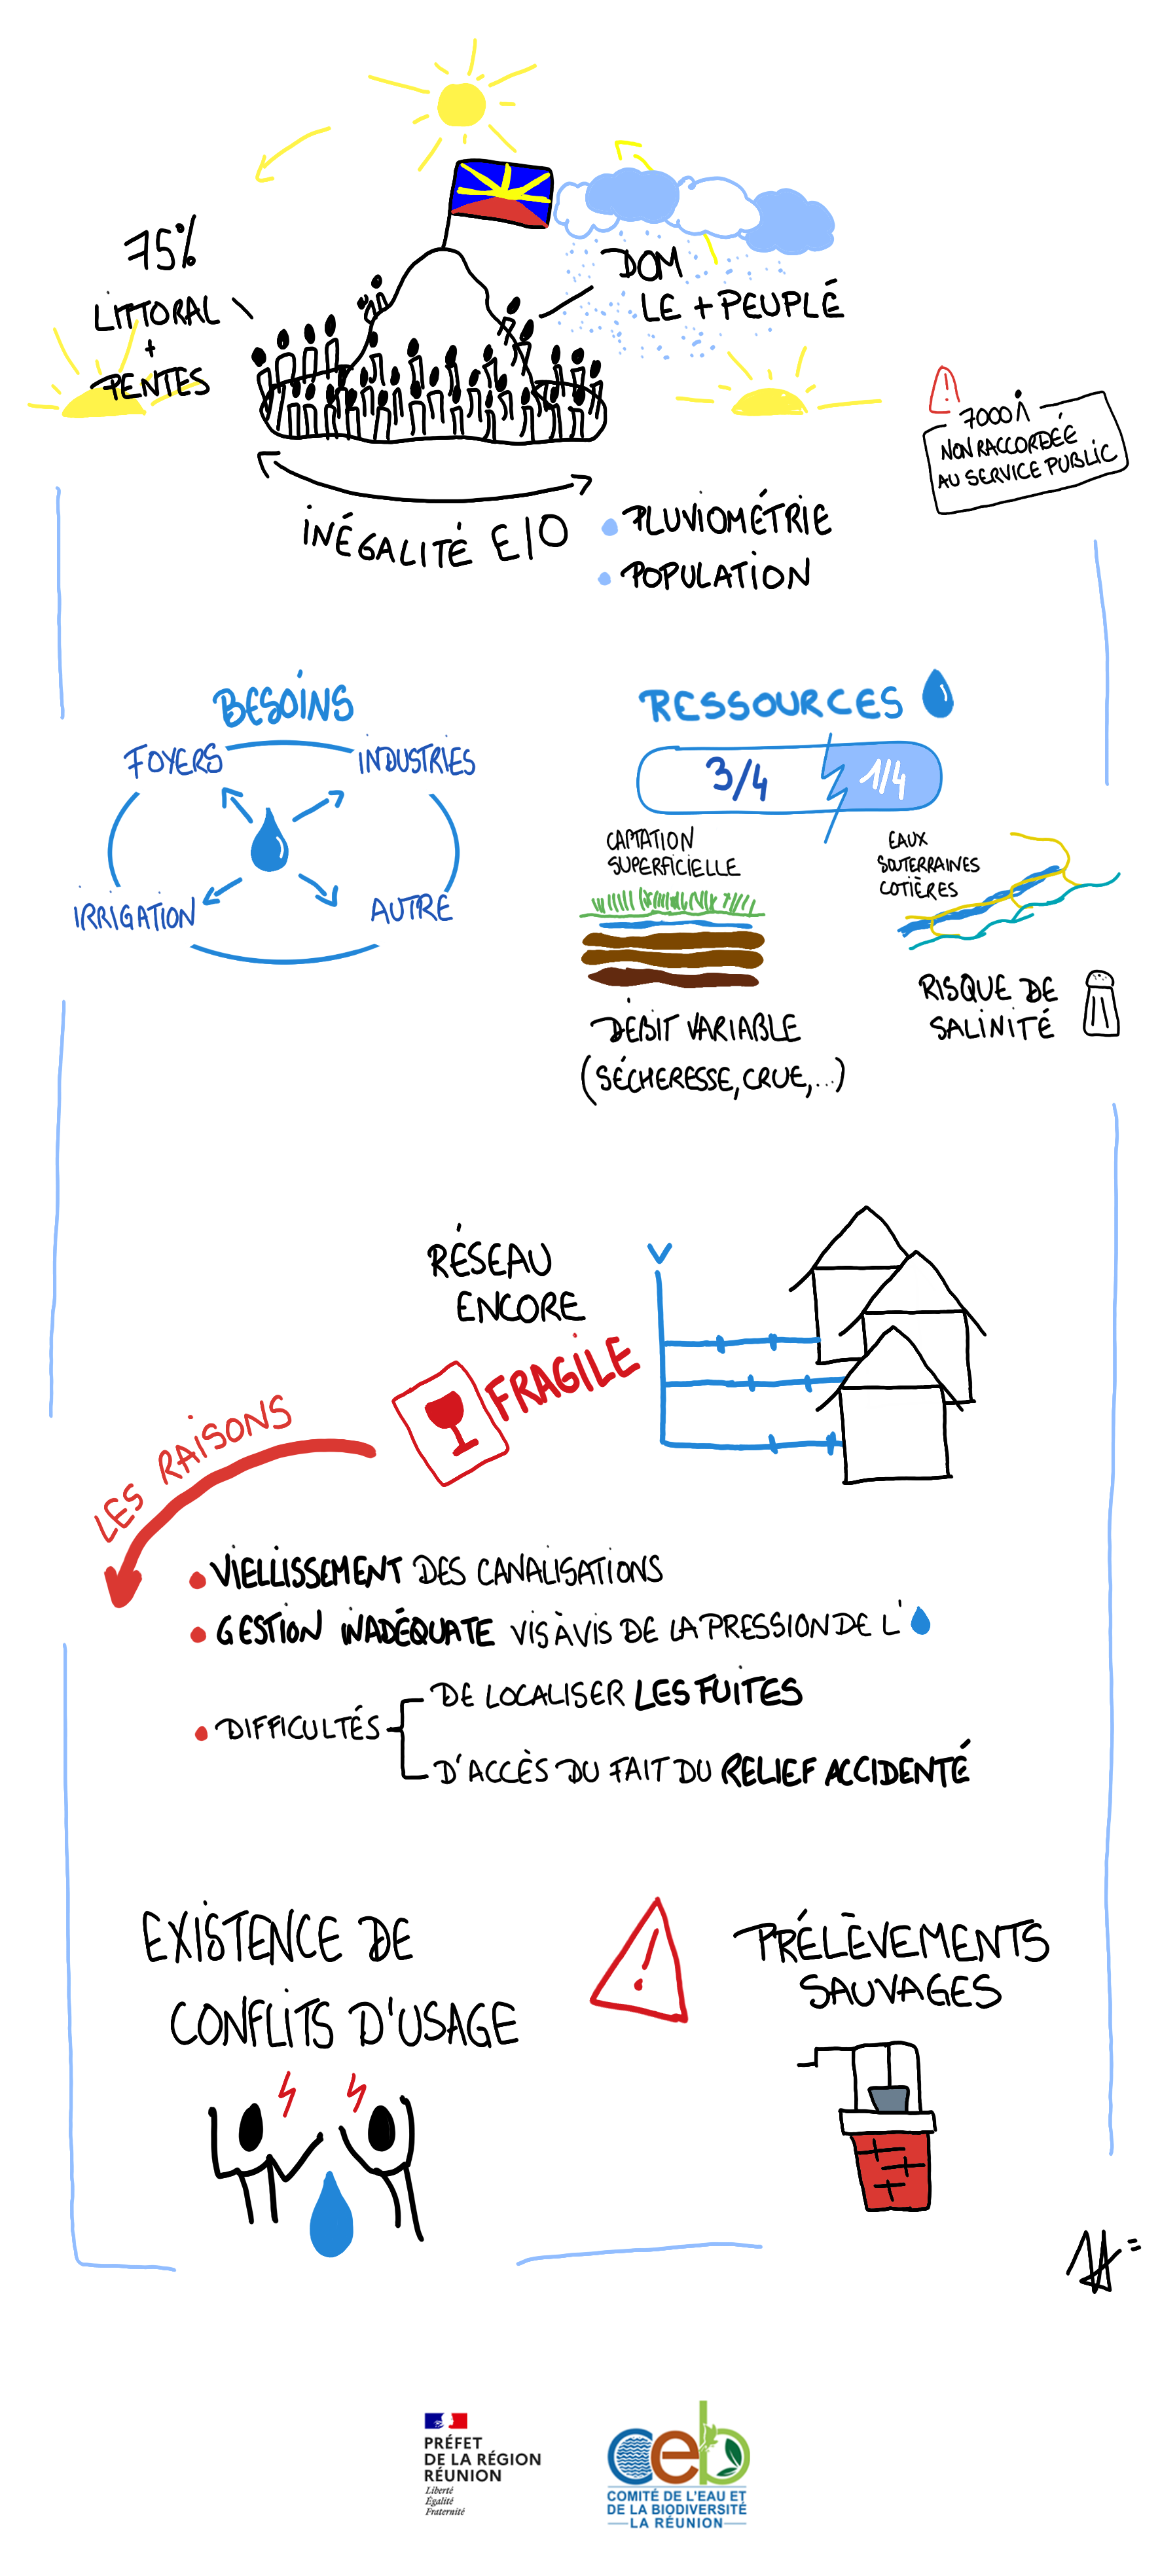 75%
LITTORAL
+
PENTES
DOM
LE + PEUPLÉ
7000
NON RACCORDÉE
AU SERVICE PUBLIC
INÉGALITÉ E/O
PLUVIOMÉTRIE
POPULATION
BESOINS
FOYERS
INDUSTRIES
IRRIGATION
AUTRE
RESSOURCES
3/4
1/4
CAPTATION
SUPERFICIELLE
DÉBIT VARIABLE
(SÉCHERESSE, CRUE,...)
EAUX
SOUTERRAINES
COTIÈRES
RISQUE DE
SALINITÉ
RÉSEAU
ENCORE
FRAGILE
LES RAISONS
VIELLISSEMENT DES CANALISATIONS
GESTION INADÉQUATE VIS À VIS DE LA PRESSION DE L'
DIFFICULTÉS
DE LOCALISER LES FUITES
D'ACCÈS DU FAIT DU RELIEF ACCIDENTÉ
EXISTENCE DE
CONFLITS D'USAGE
PRÉLÈVEMENTS
SAUVAGES
PRÉFET
DE LA RÉGION
RÉUNION
Liberté
Égalité
Fraternité
ceb
COMITÉ DE L'EAU ET
DE LA BIODIVERSITÉ
LA RÉUNION